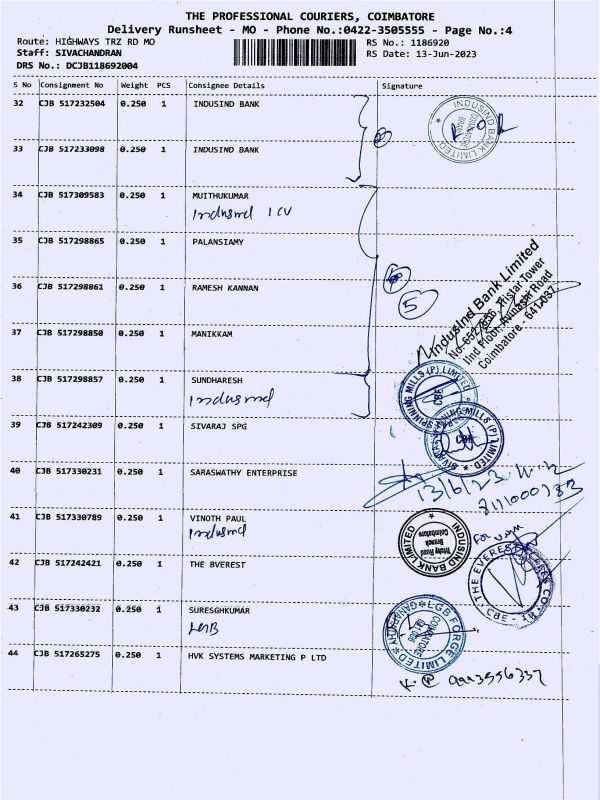 THE PROFESSIONAL COURIERS, COIMBATORE
Delivery Runsheet - MO - Phone No.:0422-3505555 - Page No.:4
Route: HIGHWAYS TRZ RD MO
RS No.: 1186920
Staff: SIVACHANDRAN
RS Date: 13-Jun-2023
DRS No.: DCJB118692004
S No Consignment No Weight PCS Consignee Details Signature
32 CJB 517232504 0.250 1 INDUSIND BANK
INDUSIND BANK LIMITED
33 CJB 517233098 0.250 1 INDUSIND BANK
34 CJB 517309583 0.250 1 MUITHUKUMAR
Indusind
35 CJB 517298865 0.250 1 PALANSIAMY
36 CJB 517298861 0.250 1 RAMESH KANNAN
5
IndusInd Bank Limited
IInd Floor, Avinashi Road
Coimbatore - 641 037
37 CJB 517298850 0.250 1 MANIKKAM
38 CJB 517298857 0.250 1 SUNDHARESH
Indusind
SPINNING MILLS (P) LIMITED
CBE
39 CJB 517242309 0.250 1 SIVARAJ SPG
SPINNING MILLS (P) LIMITED
CBE
40 CJB 517330231 0.250 1 SARASWATHY ENTERPRISE
13/6/23
41 CJB 517330789 0.250 1 VINOTH PAUL
Indusind
INDUSIND BANK LIMITED
Trichy Road
Branch
Coimbatore
42 CJB 517242421 0.250 1 THE BVEREST
THE EVEREST
CBE
43 CJB 517330232 0.250 1 SURESGHKUMAR
LGB
LGB FORGE LIMITED
COIMBATORE
44 CJB 517265275 0.250 1 HVK SYSTEMS MARKETING P LTD